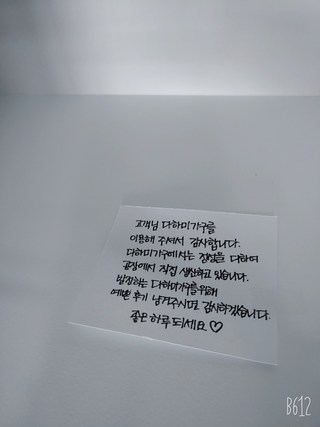 고객님 다하미가구를
이용해 주셔서 감사합니다.
다하미가구에서는 정성을 다하여
공장에서 직접 생산하고 있습니다.
발전하는 다하미가구를위해
예쁜 후기 남겨주시면 감사하겠습니다.
좋은 하루 되세요♡
B612